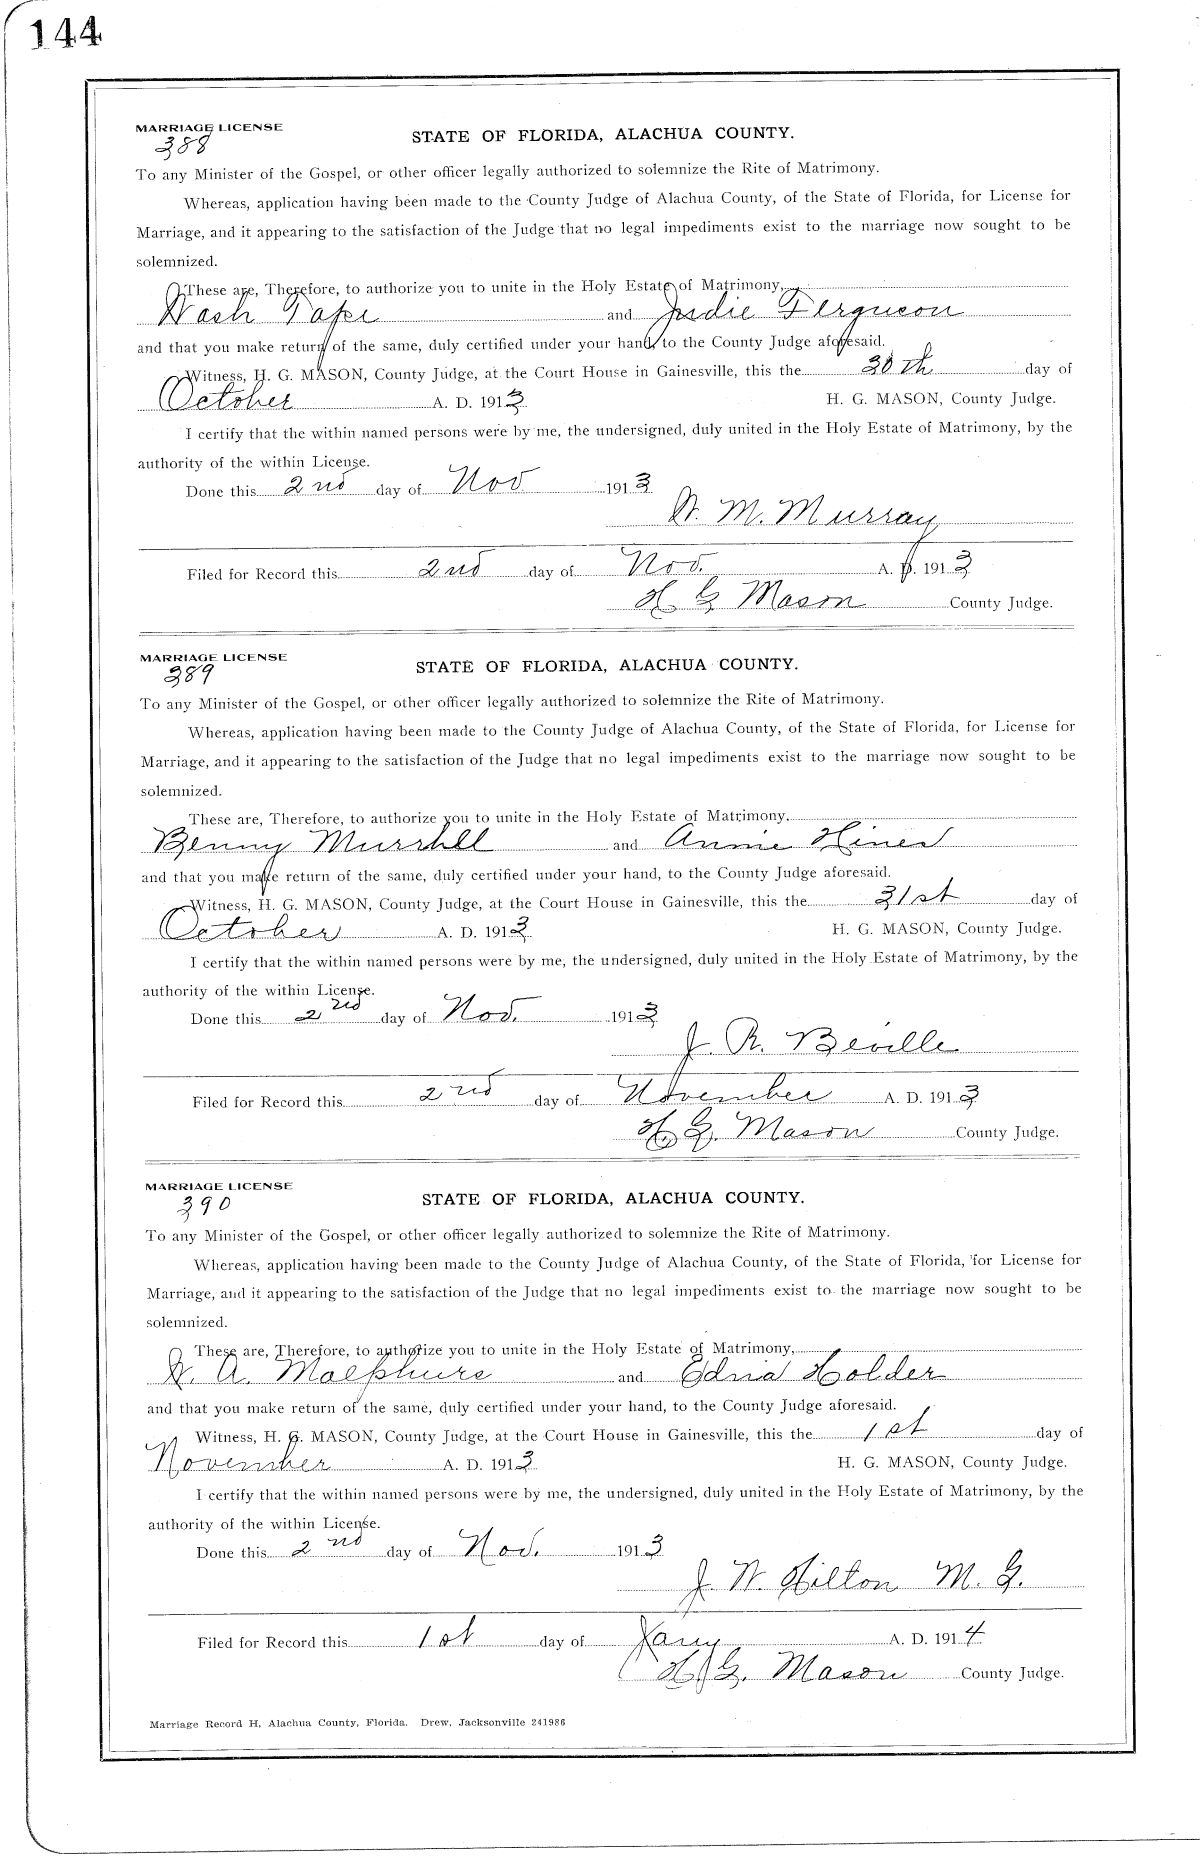 144
MARRIAGE LICENSE
388
STATE OF FLORIDA, ALACHUA COUNTY.
To any Minister of the Gospel, or other officer legally authorized to solemnize the Rite of Matrimony.
Whereas, application having been made to the County Judge of Alachua County, of the State of Florida, for License for
Marriage, and it appearing to the satisfaction of the Judge that no legal impediments exist to the marriage now sought to be
solemnized.
These are, Therefore, to authorize you to unite in the Holy Estate of Matrimony,
Wash and Ferguson
and that you make return of the same, duly certified under your hand, to the County Judge aforesaid.
Witness, H. G. MASON, County Judge, at the Court House in Gainesville, this the 30th day of
October A. D. 1913 H. G. MASON, County Judge.
I certify that the within named persons were by me, the undersigned, duly united in the Holy Estate of Matrimony, by the
authority of the within License.
Done this 2nd day of Nov 1913
W. M. Murray
Filed for Record this 2nd day of Nov. A. D. 1913
H G Mason County Judge.
MARRIAGE LICENSE
389
STATE OF FLORIDA, ALACHUA COUNTY.
To any Minister of the Gospel, or other officer legally authorized to solemnize the Rite of Matrimony.
Whereas, application having been made to the County Judge of Alachua County, of the State of Florida, for License for
Marriage, and it appearing to the satisfaction of the Judge that no legal impediments exist to the marriage now sought to be
solemnized.
These are, Therefore, to authorize you to unite in the Holy Estate of Matrimony,
Benny and Annie Hines
and that you make return of the same, duly certified under your hand, to the County Judge aforesaid.
Witness, H. G. MASON, County Judge, at the Court House in Gainesville, this the 31st day of
October A. D. 1913 H. G. MASON, County Judge.
I certify that the within named persons were by me, the undersigned, duly united in the Holy Estate of Matrimony, by the
authority of the within License.
Done this 2nd day of Nov. 1913
J. R. Beville
Filed for Record this 2nd day of November A. D. 1913
H. G. Mason County Judge.
MARRIAGE LICENSE
390
STATE OF FLORIDA, ALACHUA COUNTY.
To any Minister of the Gospel, or other officer legally authorized to solemnize the Rite of Matrimony.
Whereas, application having been made to the County Judge of Alachua County, of the State of Florida, for License for
Marriage, and it appearing to the satisfaction of the Judge that no legal impediments exist to the marriage now sought to be
solemnized.
These are, Therefore, to authorize you to unite in the Holy Estate of Matrimony,
W. A. Malphurs and Edna Holder
and that you make return of the same, duly certified under your hand, to the County Judge aforesaid.
Witness, H. G. MASON, County Judge, at the Court House in Gainesville, this the 1st day of
November A. D. 1913 H. G. MASON, County Judge.
I certify that the within named persons were by me, the undersigned, duly united in the Holy Estate of Matrimony, by the
authority of the within License.
Done this 2nd day of Nov. 1913
J. W. Hilton M. G.
Filed for Record this 1st day of Jany A. D. 1914
H. G. Mason County Judge.
Marriage Record H, Alachua County, Florida. Drew, Jacksonville 241986